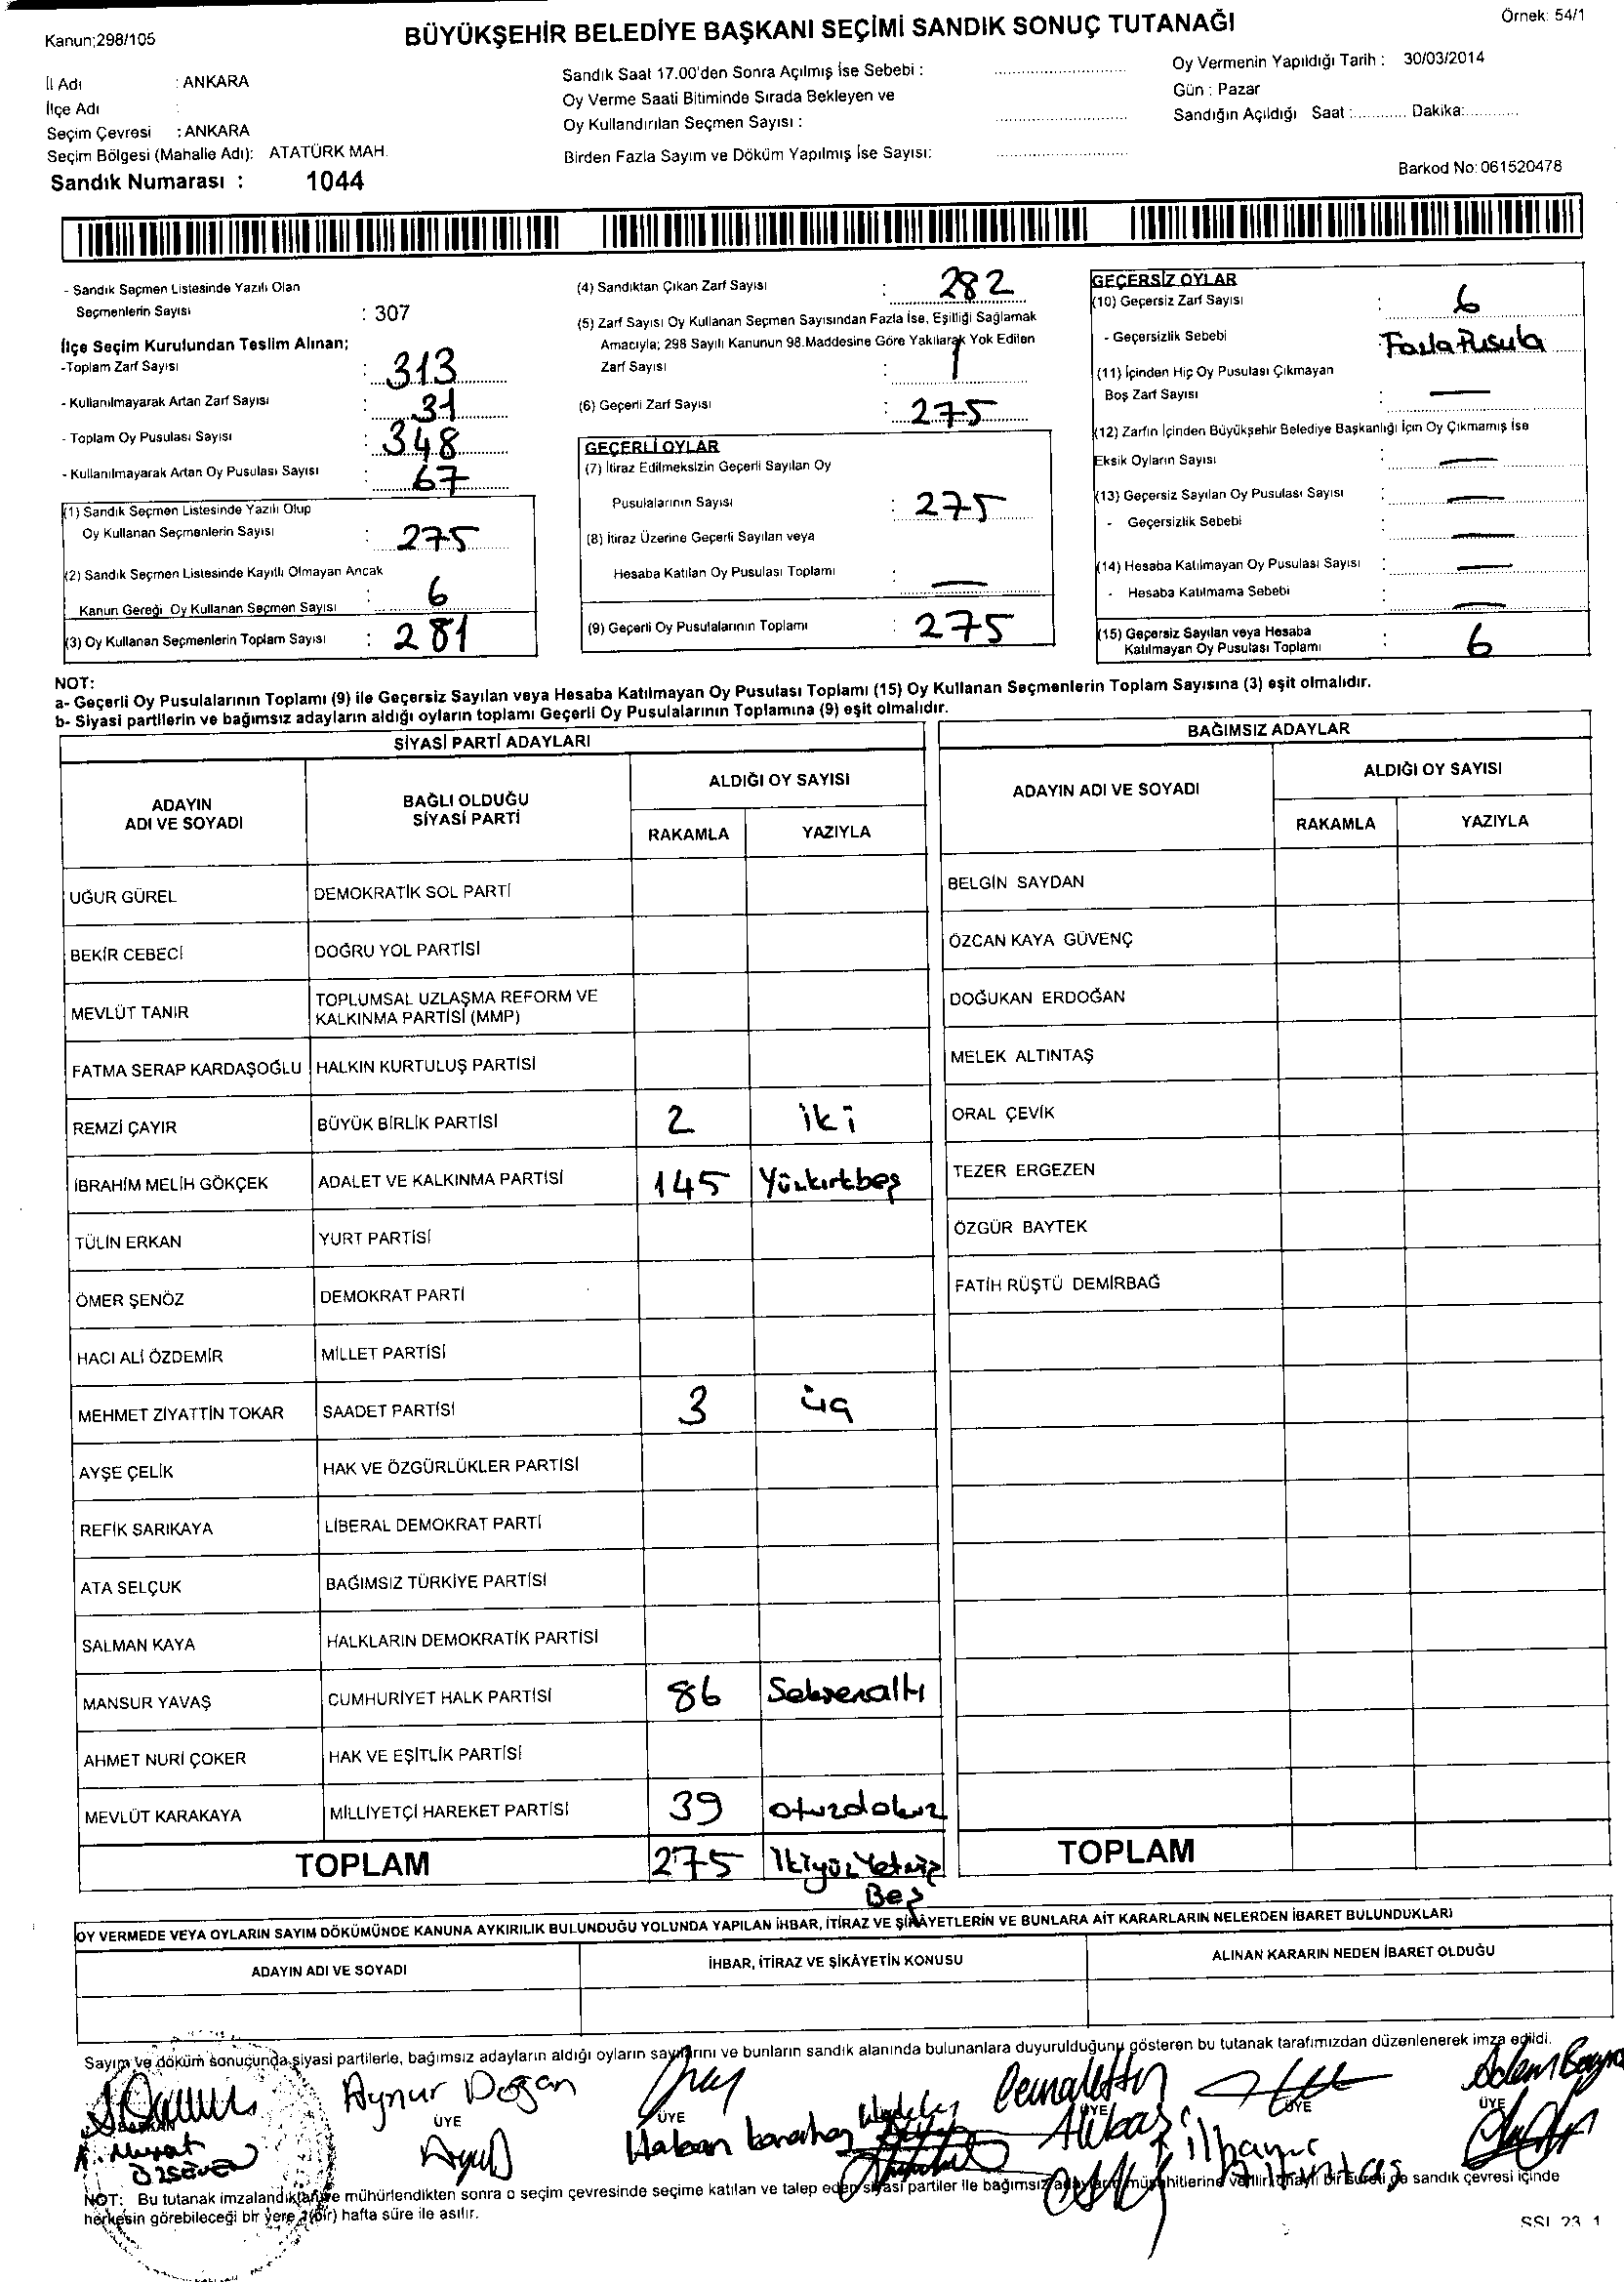 Kanun;298/105
BÜYÜKŞEHİR BELEDİYE BAŞKANI SEÇİMİ SANDIK SONUÇ TUTANAĞI
Örnek: 54/1
İl Adı : ANKARA
İlçe Adı :
Seçim Çevresi : ANKARA
Seçim Bölgesi (Mahalle Adı): ATATÜRK MAH.
Sandık Numarası : 1044
Sandık Saat 17.00'den Sonra Açılmış İse Sebebi :
Oy Verme Saati Bitiminde Sırada Bekleyen ve
Oy Kullandırılan Seçmen Sayısı :
Birden Fazla Sayım ve Döküm Yapılmış İse Sayısı:
Oy Vermenin Yapıldığı Tarih : 30/03/2014
Gün : Pazar
Sandığın Açıldığı Saat :............ Dakika:............
Barkod No: 061520478
- Sandık Seçmen Listesinde Yazılı Olan
Seçmenlerin Sayısı : 307
İlçe Seçim Kurulundan Teslim Alınan;
-Toplam Zarf Sayısı : 313
- Kullanılmayarak Artan Zarf Sayısı : 31
- Toplam Oy Pusulası Sayısı : 348
- Kullanılmayarak Artan Oy Pusulası Sayısı : 67
(1) Sandık Seçmen Listesinde Yazılı Olup
Oy Kullanan Seçmenlerin Sayısı : 275
(2) Sandık Seçmen Listesinde Kayıtlı Olmayan Ancak
Kanun Gereği Oy Kullanan Seçmen Sayısı : 6
(3) Oy Kullanan Seçmenlerin Toplam Sayısı : 281
(4) Sandıktan Çıkan Zarf Sayısı : 282
(5) Zarf Sayısı Oy Kullanan Seçmen Sayısından Fazla İse, Eşitliği Sağlamak
Amacıyla; 298 Sayılı Kanunun 98.Maddesine Göre Yakılarak Yok Edilen
Zarf Sayısı : 1
(6) Geçerli Zarf Sayısı : 275
GEÇERLİ OYLAR
(7) İtiraz Edilmeksizin Geçerli Sayılan Oy
Pusulalarının Sayısı : 275
(8) İtiraz Üzerine Geçerli Sayılan veya
Hesaba Katılan Oy Pusulası Toplamı : —
(9) Geçerli Oy Pusulalarının Toplamı : 275
GEÇERSİZ OYLAR
(10) Geçersiz Zarf Sayısı : 6
- Geçersizlik Sebebi Fazla Pusula
(11) İçinden Hiç Oy Pusulası Çıkmayan
Boş Zarf Sayısı : —
(12) Zarfın İçinden Büyükşehir Belediye Başkanlığı İçin Oy Çıkmamış İse
Eksik Oyların Sayısı : —
(13) Geçersiz Sayılan Oy Pusulası Sayısı : —
- Geçersizlik Sebebi : —
(14) Hesaba Katılmayan Oy Pusulası Sayısı : —
- Hesaba Katılmama Sebebi : —
(15) Geçersiz Sayılan veya Hesaba
Katılmayan Oy Pusulası Toplamı : 6
NOT:
a- Geçerli Oy Pusulalarının Toplamı (9) ile Geçersiz Sayılan veya Hesaba Katılmayan Oy Pusulası Toplamı (15) Oy Kullanan Seçmenlerin Toplam Sayısına (3) eşit olmalıdır.
b- Siyasi partilerin ve bağımsız adayların aldığı oyların toplamı Geçerli Oy Pusulalarının Toplamına (9) eşit olmalıdır.
SİYASİ PARTİ ADAYLARI
ADAYIN ADI VE SOYADI
BAĞLI OLDUĞU SİYASİ PARTİ
ALDIĞI OY SAYISI
RAKAMLA YAZIYLA
UĞUR GÜREL DEMOKRATİK SOL PARTİ
BEKİR CEBECİ DOĞRU YOL PARTİSİ
MEVLÜT TANIR TOPLUMSAL UZLAŞMA REFORM VE
KALKINMA PARTİSİ (MMP)
FATMA SERAP KARDAŞOĞLU HALKIN KURTULUŞ PARTİSİ
REMZİ ÇAYIR BÜYÜK BİRLİK PARTİSİ 2 iki
İBRAHİM MELİH GÖKÇEK ADALET VE KALKINMA PARTİSİ 145 Yüzkırkbeş
TÜLİN ERKAN YURT PARTİSİ
ÖMER ŞENÖZ DEMOKRAT PARTİ
HACI ALİ ÖZDEMİR MİLLET PARTİSİ
MEHMET ZİYATTİN TOKAR SAADET PARTİSİ 3 üç
AYŞE ÇELİK HAK VE ÖZGÜRLÜKLER PARTİSİ
REFİK SARIKAYA LİBERAL DEMOKRAT PARTİ
ATA SELÇUK BAĞIMSIZ TÜRKİYE PARTİSİ
SALMAN KAYA HALKLARIN DEMOKRATİK PARTİSİ
MANSUR YAVAŞ CUMHURİYET HALK PARTİSİ 86 Seksenaltı
AHMET NURİ ÇOKER HAK VE EŞİTLİK PARTİSİ
MEVLÜT KARAKAYA MİLLİYETÇİ HAREKET PARTİSİ 39 otuzdokuz
TOPLAM 275 İkiyüzYetmiş
Beş
BAĞIMSIZ ADAYLAR
ADAYIN ADI VE SOYADI
ALDIĞI OY SAYISI
RAKAMLA YAZIYLA
BELGİN SAYDAN
ÖZCAN KAYA GÜVENÇ
DOĞUKAN ERDOĞAN
MELEK ALTINTAŞ
ORAL ÇEVİK
TEZER ERGEZEN
ÖZGÜR BAYTEK
FATİH RÜŞTÜ DEMİRBAĞ
TOPLAM
OY VERMEDE VEYA OYLARIN SAYIM DÖKÜMÜNDE KANUNA AYKIRILIK BULUNDUĞU YOLUNDA YAPILAN İHBAR, İTİRAZ VE ŞİKÂYETLERİN VE BUNLARA AİT KARARLARIN NELERDEN İBARET BULUNDUKLARI
ADAYIN ADI VE SOYADI
İHBAR, İTİRAZ VE ŞİKÂYETİN KONUSU
ALINAN KARARIN NEDEN İBARET OLDUĞU
Sayım ve döküm sonucunda siyasi partilerle, bağımsız adayların aldığı oyların sayılarını ve bunların sandık alanında bulunanlara duyurulduğunu gösteren bu tutanak tarafımızdan düzenlenerek imza edildi.
Aynur Doğan
BAŞKAN ÜYE ÜYE ÜYE ÜYE ÜYE
A. Murat
ÖZSEVEN
Hakan
İlhamur
Altıntaş
NOT: Bu tutanak imzalandıktan ve mühürlendikten sonra o seçim çevresinde seçime katılan ve talep eden siyasi partiler ile bağımsız adayların müşahitlerine verilir. Onaylı bir sureti de sandık çevresi içinde
herkesin görebileceği bir yere 1(bir) hafta süre ile asılır.